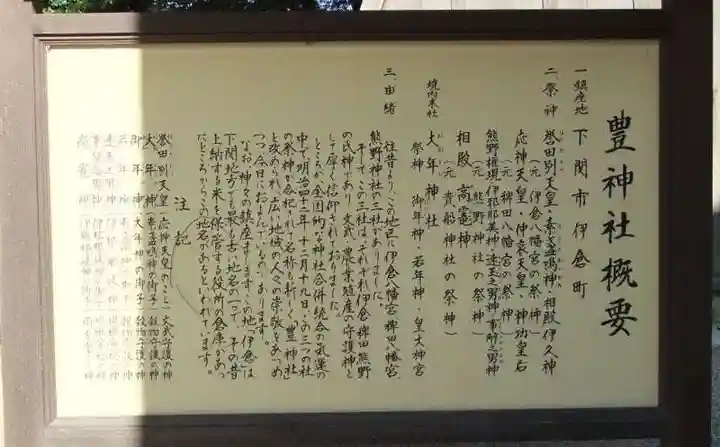 豊神社概要
一 鎮座地 下関市伊倉町
二 祭神 誉田別天皇・素盞鳴神・相殿 伊久神
(元 伊倉八幡宮の祭神)
応神天皇・仲哀天皇・神功皇后
(元 稗田八幡宮の祭神)
熊野権現・伊邪那美神・速玉之男神・事解之男神
(元 熊野神社の祭神)
相殿 高龗神
(元 貴船神社の祭神)
境内末社 大年神社
祭神 御年神・若年神・皇大神宮
三 由緒
往昔より、この地区に伊倉八幡宮、稗田八幡宮、
熊野神社の三社がありました。
そしてこの三社は、それぞれ伊倉、稗田、熊野
の氏神であり、文武、農業殖産の守護神と
して厚く信仰されておりました。
ところが全国的な神社合併統合の気運の
中で、明治四十二年十二月十九日、この三つの社
の祭神が合祀され、名称を新しく「豊神社」
と改められ、広い地域の人々の崇敬をあつめ
つつ今日におよんでいるのであります。
なお、神々の鎮座まします、この地「伊倉」は
下関地方でも最も古い地名の一つで、その昔
上納する米を保管する役所の倉庫があっ
たところからこの地名があるといわれています。
注記
誉田別天皇(応神天皇のこと)文武守護の神
大年神(素盞鳴神の御子)穀物守護の神
御年神(大年神の御子)穀物守護の神